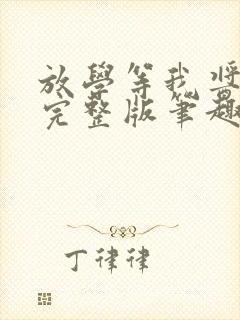 放學等我 將
完整版筆趣
丁律律